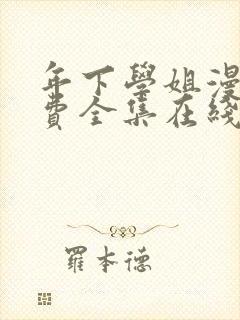 年下學姐漫
費全集在綫
羅本德